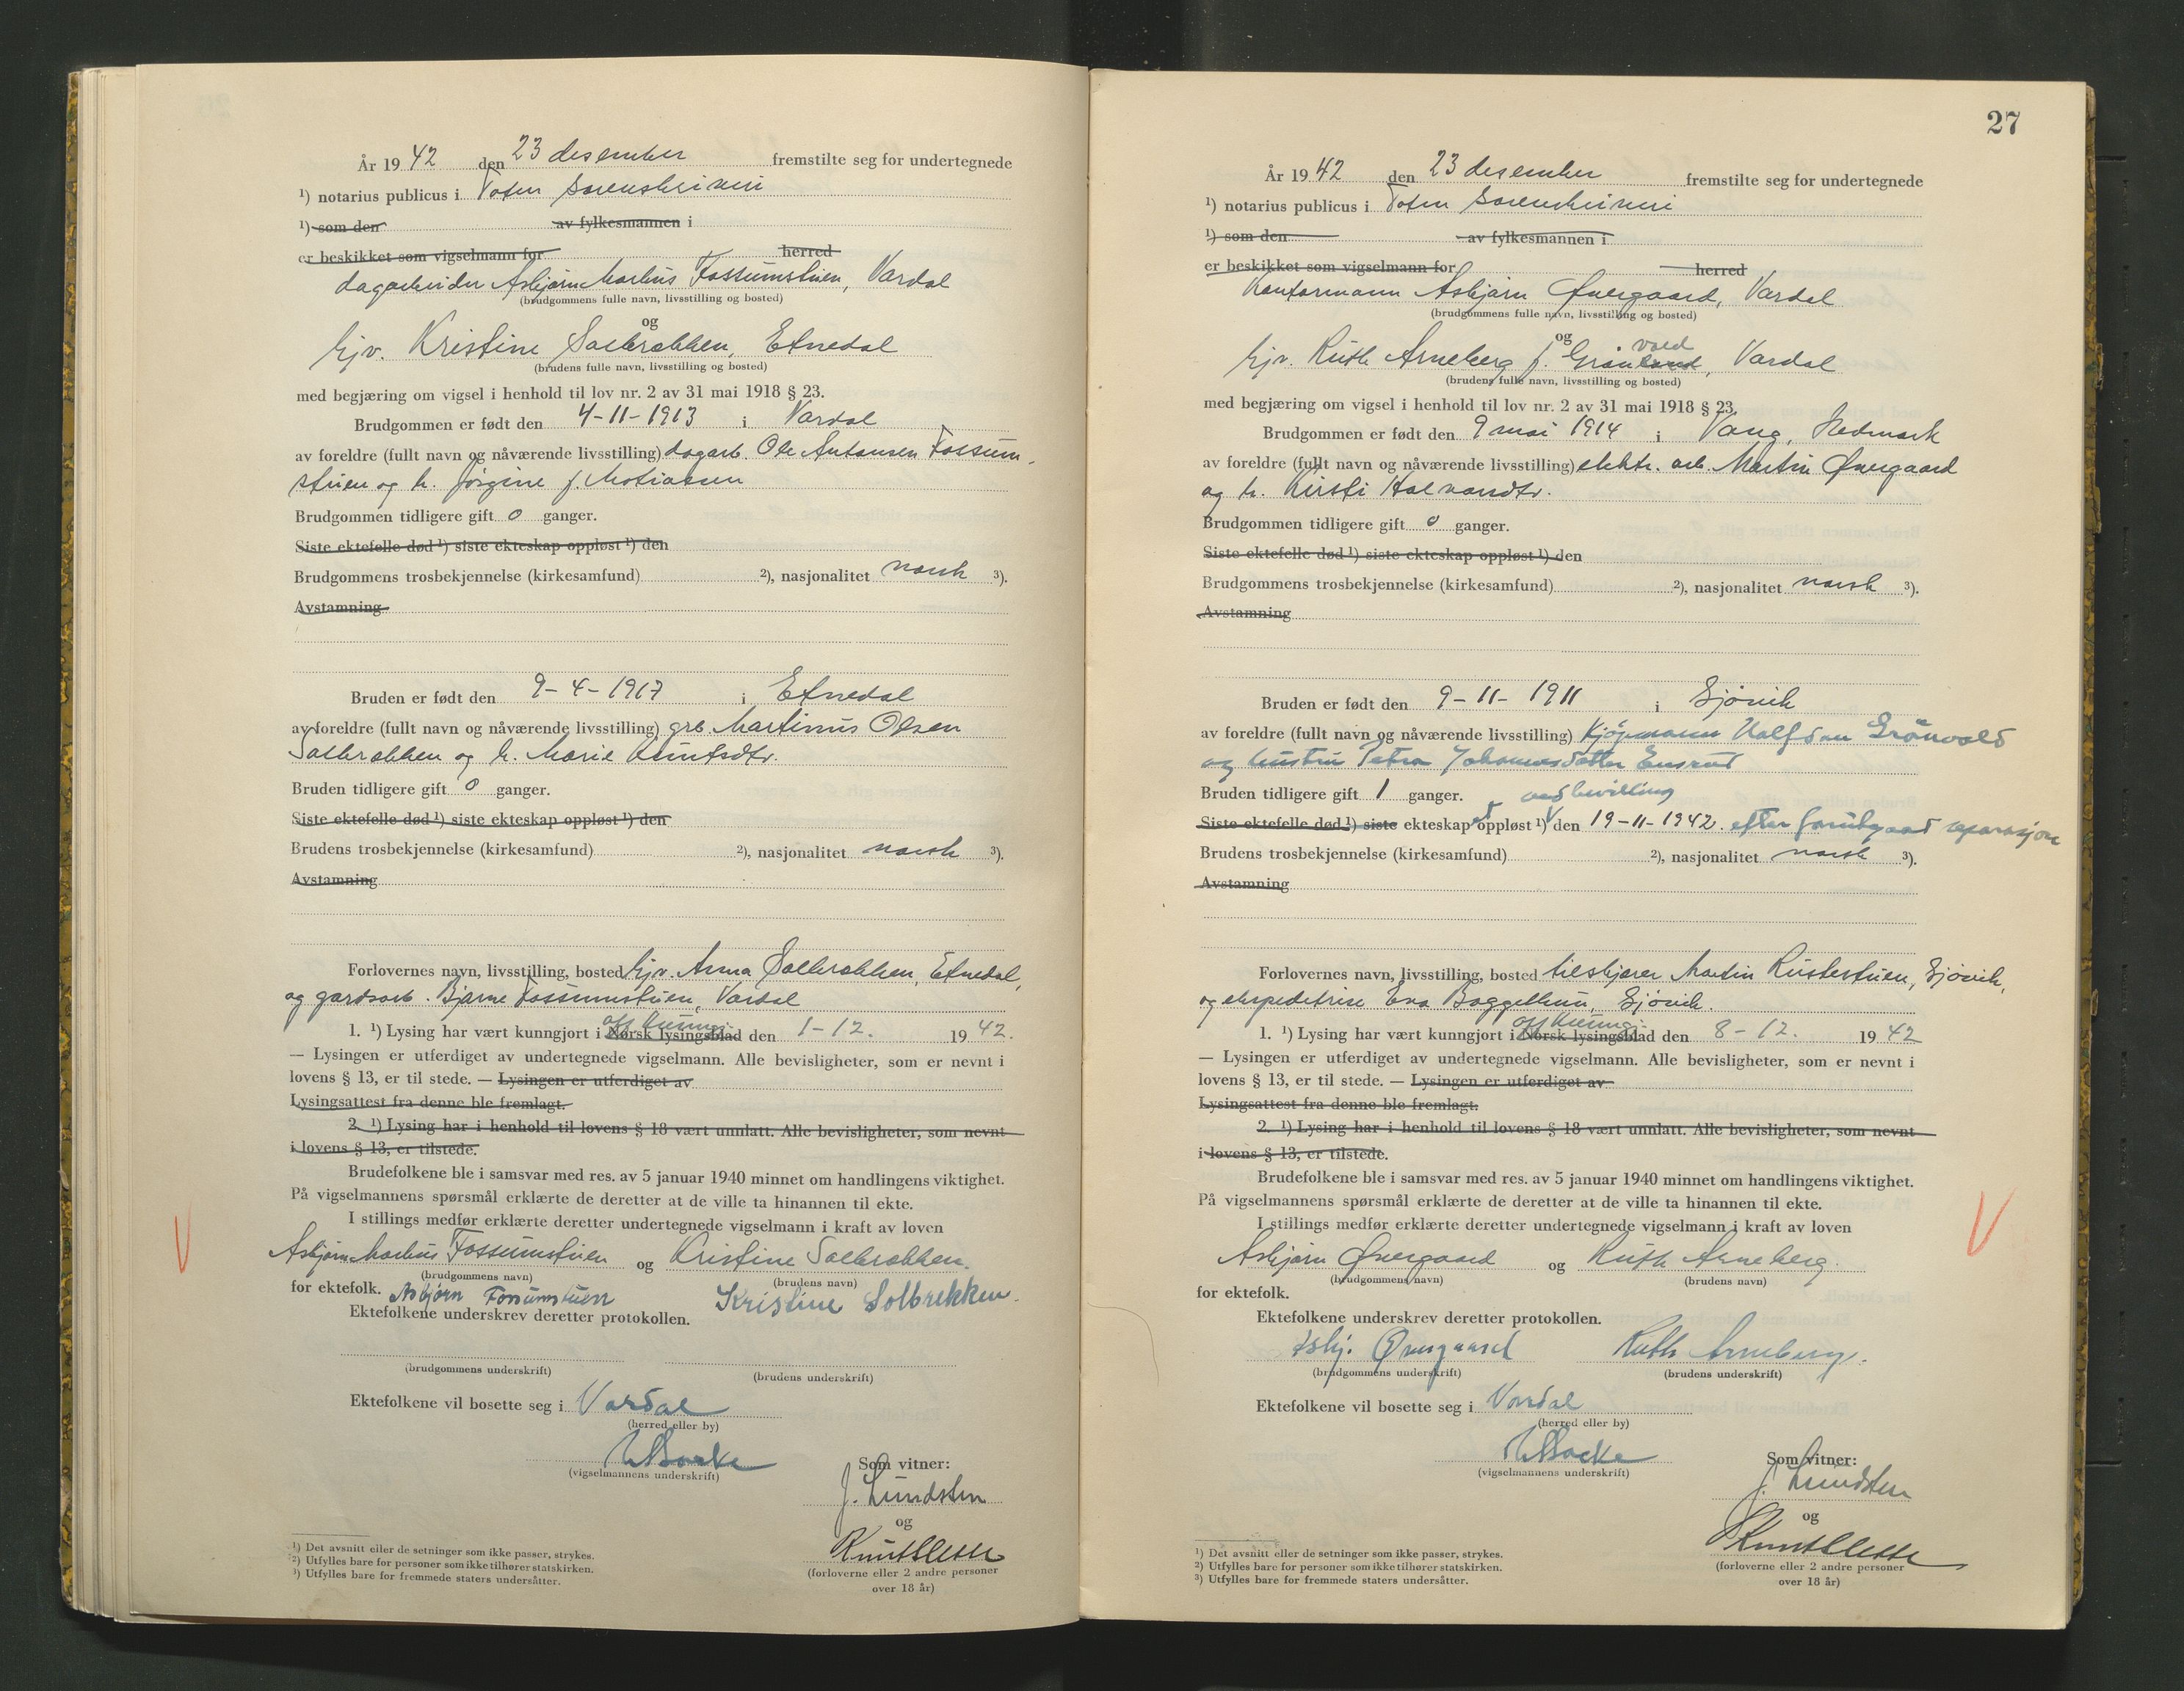 År 19 42 den 23 desember fremstilte seg for undertegnede
¹) notarius publicus i Toten sorenskriveri
¹) som den av fylkesmannen i
er beskikket som vigselmann for herred
dagarbeider Asbjørn Markus Fossumstuen, Vardal
(brudgommens fulle navn, livsstilling og bosted)
og
hjv. Kristine Solbrekken, Etnedal
(brudens fulle navn, livsstilling og bosted)
med begjæring om vigsel i henhold til lov nr. 2 av 31 mai 1918 § 23.
Brudgommen er født den 4-11-1913 i Vardal
av foreldre (fullt navn og nåværende livsstilling) dagarb. Ole Antonsen Fossum-
stuen og h. Jørgine f. Motiassen
Brudgommen tidligere gift 0 ganger.
Siste ektefelle død ¹) siste ekteskap oppløst ¹) den
Brudgommens trosbekjennelse (kirkesamfund) ²), nasjonalitet norsk ³).
Avstamning
Bruden er født den 9-4-1917 i Etnedal
av foreldre (fullt navn og nåværende livsstilling) grb. Martinus Olsen
Solbrekken og h. Marie Knutsdtr.
Bruden tidligere gift 0 ganger.
Siste ektefelle død ¹) siste ekteskap oppløst ¹) den
Brudens trosbekjennelse (kirkesamfund) ²), nasjonalitet norsk ³).
Avstamning
Forlovernes navn, livsstilling, bosted hjv. Anna Solbrekken, Etnedal,
og gardsarb. Bjarne Fossumstuen, Vardal
off. kunngj.
1. ¹) Lysing har vært kunngjort i Norsk lysingsblad den 1-12. 19 42.
— Lysingen er utferdiget av undertegnede vigselmann. Alle bevisligheter, som er nevnt i
lovens § 13, er til stede. — Lysingen er utferdiget av
Lysingsattest fra denne ble fremlagt.
2. ¹) Lysing har i henhold til lovens § 18 vært unnlatt. Alle bevisligheter, som nevnt
i lovens § 13, er tilstede.
Brudefolkene ble i samsvar med res. av 5 januar 1940 minnet om handlingens viktighet.
På vigselmannens spørsmål erklærte de deretter at de ville ta hinannen til ekte.
I stillings medfør erklærte deretter undertegnede vigselmann i kraft av loven
Asbjørn Markus Fossumstuen og Kristine Solbrekken.
(brudgommens navn) (brudens navn)
for ektefolk. Asbjørn Fossumstuen Kristine Solbrekken.
Ektefolkene underskrev deretter protokollen.
(brudgommens underskrift) (brudens underskrift)
Ektefolkene vil bosette seg i Vardal
(herred eller by)
(vigselmannens underskrift)
Som vitner:
J. Lundsten
og
(forloverne eller 2 andre personer
over 18 år)
¹) Det avsnitt eller de setninger som ikke passer, strykes.
²) Utfylles bare for personer som ikke tilhører statskirken.
³) Utfylles bare for fremmede staters undersåtter.
27
År 19 42 den 23 desember fremstilte seg for undertegnede
¹) notarius publicus i Toten sorenskriveri
¹) som den av fylkesmannen i
er beskikket som vigselmann for herred
Kontormann Asbjørn Øvergaard, Vardal
(brudgommens fulle navn, livsstilling og bosted)
og
vold
hjv. Ruth Arneberg f. Grønlund, Vardal
(brudens fulle navn, livsstilling og bosted)
med begjæring om vigsel i henhold til lov nr. 2 av 31 mai 1918 § 23.
Brudgommen er født den 9 mai 1914 i Vang, Hedmark
av foreldre (fullt navn og nåværende livsstilling) elektr. arb. Martin Øvergaard
og h. Kirsti Halvorsdtr.
Brudgommen tidligere gift 0 ganger.
Siste ektefelle død ¹) siste ekteskap oppløst ¹) den
Brudgommens trosbekjennelse (kirkesamfund) ²), nasjonalitet norsk ³).
Avstamning
Bruden er født den 9-11-1911 i Gjøvik
av foreldre (fullt navn og nåværende livsstilling) Kjøpmann Halfdan Grönvold
og hustru Petra Johannesdatter Ensrud
Bruden tidligere gift 1 ganger. ved bevilling
Siste ektefelle død ¹) siste ekteskap oppløst ¹) den 19-11-1942. efter forutgaad separasjon
Brudens trosbekjennelse (kirkesamfund) ²), nasjonalitet norsk ³).
Avstamning
Forlovernes navn, livsstilling, bosted tilskjærer Martin Rustestuen, Gjøvik,
og ekspeditrise Eva Baggethun, Gjøvik.
off. kunngj.
1. ¹) Lysing har vært kunngjort i Norsk lysingsblad den 8-12. 19 42
— Lysingen er utferdiget av undertegnede vigselmann. Alle bevisligheter, som er nevnt i
lovens § 13, er til stede. — Lysingen er utferdiget av
Lysingsattest fra denne ble fremlagt.
2. ¹) Lysing har i henhold til lovens § 18 vært unnlatt. Alle bevisligheter, som nevnt
i lovens § 13, er tilstede.
Brudefolkene ble i samsvar med res. av 5 januar 1940 minnet om handlingens viktighet.
På vigselmannens spørsmål erklærte de deretter at de ville ta hinannen til ekte.
I stillings medfør erklærte deretter undertegnede vigselmann i kraft av loven
Asbjørn Øvergaard og Ruth Arneberg.
(brudgommens navn) (brudens navn)
for ektefolk.
Ektefolkene underskrev deretter protokollen.
Asbj. Øvergaard Ruth Arneberg.
(brudgommens underskrift) (brudens underskrift)
Ektefolkene vil bosette seg i Vardal
(herred eller by)
(vigselmannens underskrift)
Som vitner:
J. Lundsten
og
(forloverne eller 2 andre personer
over 18 år)
¹) Det avsnitt eller de setninger som ikke passer, strykes.
²) Utfylles bare for personer som ikke tilhører statskirken.
³) Utfylles bare for fremmede staters undersåtter.